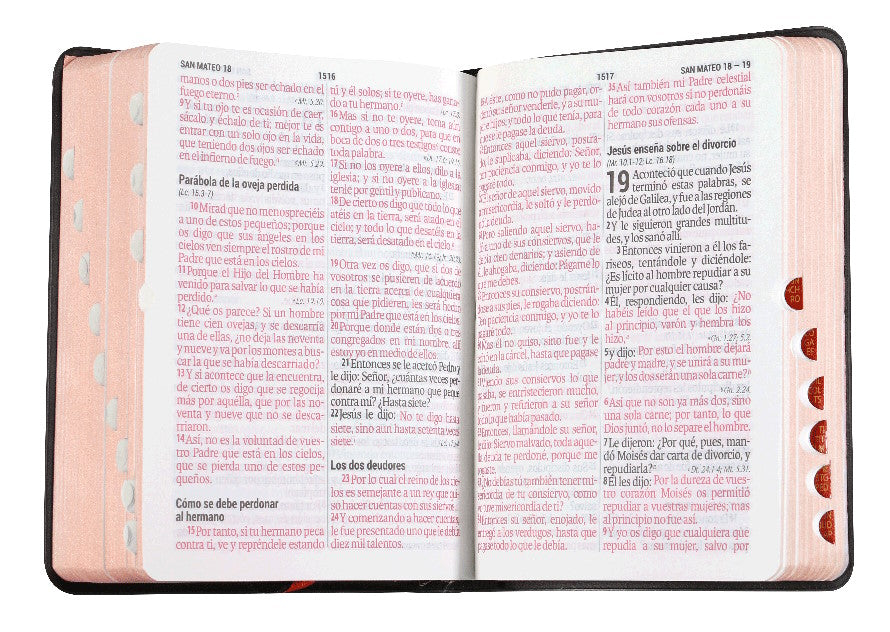 SAN MATEO 18
1516
manos o dos pies ser echado en el
fuego eterno.
9 Y si tu ojo te es ocasión de caer,
sácalo y échalo de ti; mejor te es
entrar con un solo ojo en la vida,
que teniendo dos ojos ser echado
en el infierno de fuego.
Parábola de la oveja perdida
(Lc. 15.3-7)
10 Mirad que no menospreciéis
a uno de estos pequeños; porque
os digo que sus ángeles en los
cielos ven siempre el rostro de mi
Padre que está en los cielos.
11 Porque el Hijo del Hombre ha
venido para salvar lo que se había
perdido.
12 ¿Qué os parece? Si un hombre
tiene cien ovejas, y se descarría
una de ellas, ¿no deja las noventa
y nueve y va por los montes a bus-
car la que se había descarriado?
13 Y si acontece que la encuentra,
de cierto os digo que se regocija
más por aquélla, que por las no-
venta y nueve que no se desca-
rriaron.
14 Así, no es la voluntad de vues-
tro Padre que está en los cielos,
que se pierda uno de estos pe-
queños.
Cómo se debe perdonar
al hermano
15 Por tanto, si tu hermano peca
contra ti, ve y repréndele estando
tú y él solos; si te oyere, has gana-
do a tu hermano.
16 Mas si no te oyere, toma aún
contigo a uno o dos, para que en
boca de dos o tres testigos conste
toda palabra.
17 Si no los oyere a ellos, dilo a la
iglesia; y si no oyere a la iglesia,
tenle por gentil y publicano.
18 De cierto os digo que todo lo que
atéis en la tierra, será atado en el
cielo; y todo lo que desatéis en la
tierra, será desatado en el cielo.
19 Otra vez os digo, que si dos de
vosotros se pusieren de acuerdo
en la tierra acerca de cualquiera
cosa que pidieren, les será hecho
por mi Padre que está en los cielos.
20 Porque donde están dos o tres
congregados en mi nombre, allí
estoy yo en medio de ellos.
21 Entonces se le acercó Pedro y
le dijo: Señor, ¿cuántas veces per-
donaré a mi hermano que peque
contra mí? ¿Hasta siete?
22 Jesús le dijo: No te digo hasta
siete, sino aun hasta setenta veces
siete.
Los dos deudores
23 Por lo cual el reino de los cie-
los es semejante a un rey que qui-
so hacer cuentas con sus siervos.
24 Y comenzando a hacer cuentas,
le fue presentado uno que le debía
diez mil talentos.
1517
SAN MATEO 18 – 19
A éste, como no pudo pagar, or-
su señor venderle, y a su mu-
e hijos, y todo lo que tenía, para
se le pagase la deuda.
Entonces aquel siervo, postra-
le suplicaba, diciendo: Señor,
paciencia conmigo, y yo te lo
pagaré todo.
El señor de aquel siervo, movido
misericordia, le soltó y le perdo-
la deuda.
Pero saliendo aquel siervo, ha-
a uno de sus consiervos, que le
cien denarios; y asiendo de
le ahogaba, diciendo: Págame lo
que me debes.
Entonces su consiervo, postrán-
a sus pies, le rogaba diciendo:
paciencia conmigo, y yo te lo
pagaré todo.
Mas él no quiso, sino fue y le
en la cárcel, hasta que pagase
la deuda.
Viendo sus consiervos lo que
pasaba, se entristecieron mucho,
y fueron y refirieron a su señor
todo lo que había pasado.
Entonces, llamándole su señor,
le dijo: Siervo malvado, toda aque-
lla deuda te perdoné, porque me
¿No debías tú también tener mi-
sericordia de tu consiervo, como
yo tuve misericordia de ti?
Entonces su señor, enojado, le
entregó a los verdugos, hasta que
pagase todo lo que le debía.
35 Así también mi Padre celestial
hará con vosotros si no perdonáis
de todo corazón cada uno a su
hermano sus ofensas.
Jesús enseña sobre el divorcio
(Mr. 10.1-12; Lc. 16.18)
19 Aconteció que cuando Jesús
terminó estas palabras, se
alejó de Galilea, y fue a las regiones
de Judea al otro lado del Jordán.
2 Y le siguieron grandes multitu-
des, y los sanó allí.
3 Entonces vinieron a él los fa-
riseos, tentándole y diciéndole:
¿Es lícito al hombre repudiar a su
mujer por cualquier causa?
4 Él, respondiendo, les dijo: ¿No
habéis leído que el que los hizo
al principio, varón y hembra los
hizo,
Gn. 1.27; 5.2.
5 y dijo: Por esto el hombre dejará
padre y madre, y se unirá a su mu-
jer, y los dos serán una sola carne?
Gn. 2.24.
6 Así que no son ya más dos, sino
una sola carne; por tanto, lo que
Dios juntó, no lo separe el hombre.
7 Le dijeron: ¿Por qué, pues, man-
dó Moisés dar carta de divorcio, y
repudiarla?
Dt. 24.1-4; Mt. 5.31.
8 Él les dijo: Por la dureza de vues-
tro corazón Moisés os permitió
repudiar a vuestras mujeres; mas
al principio no fue así.
9 Y yo os digo que cualquiera que
repudia a su mujer, salvo por